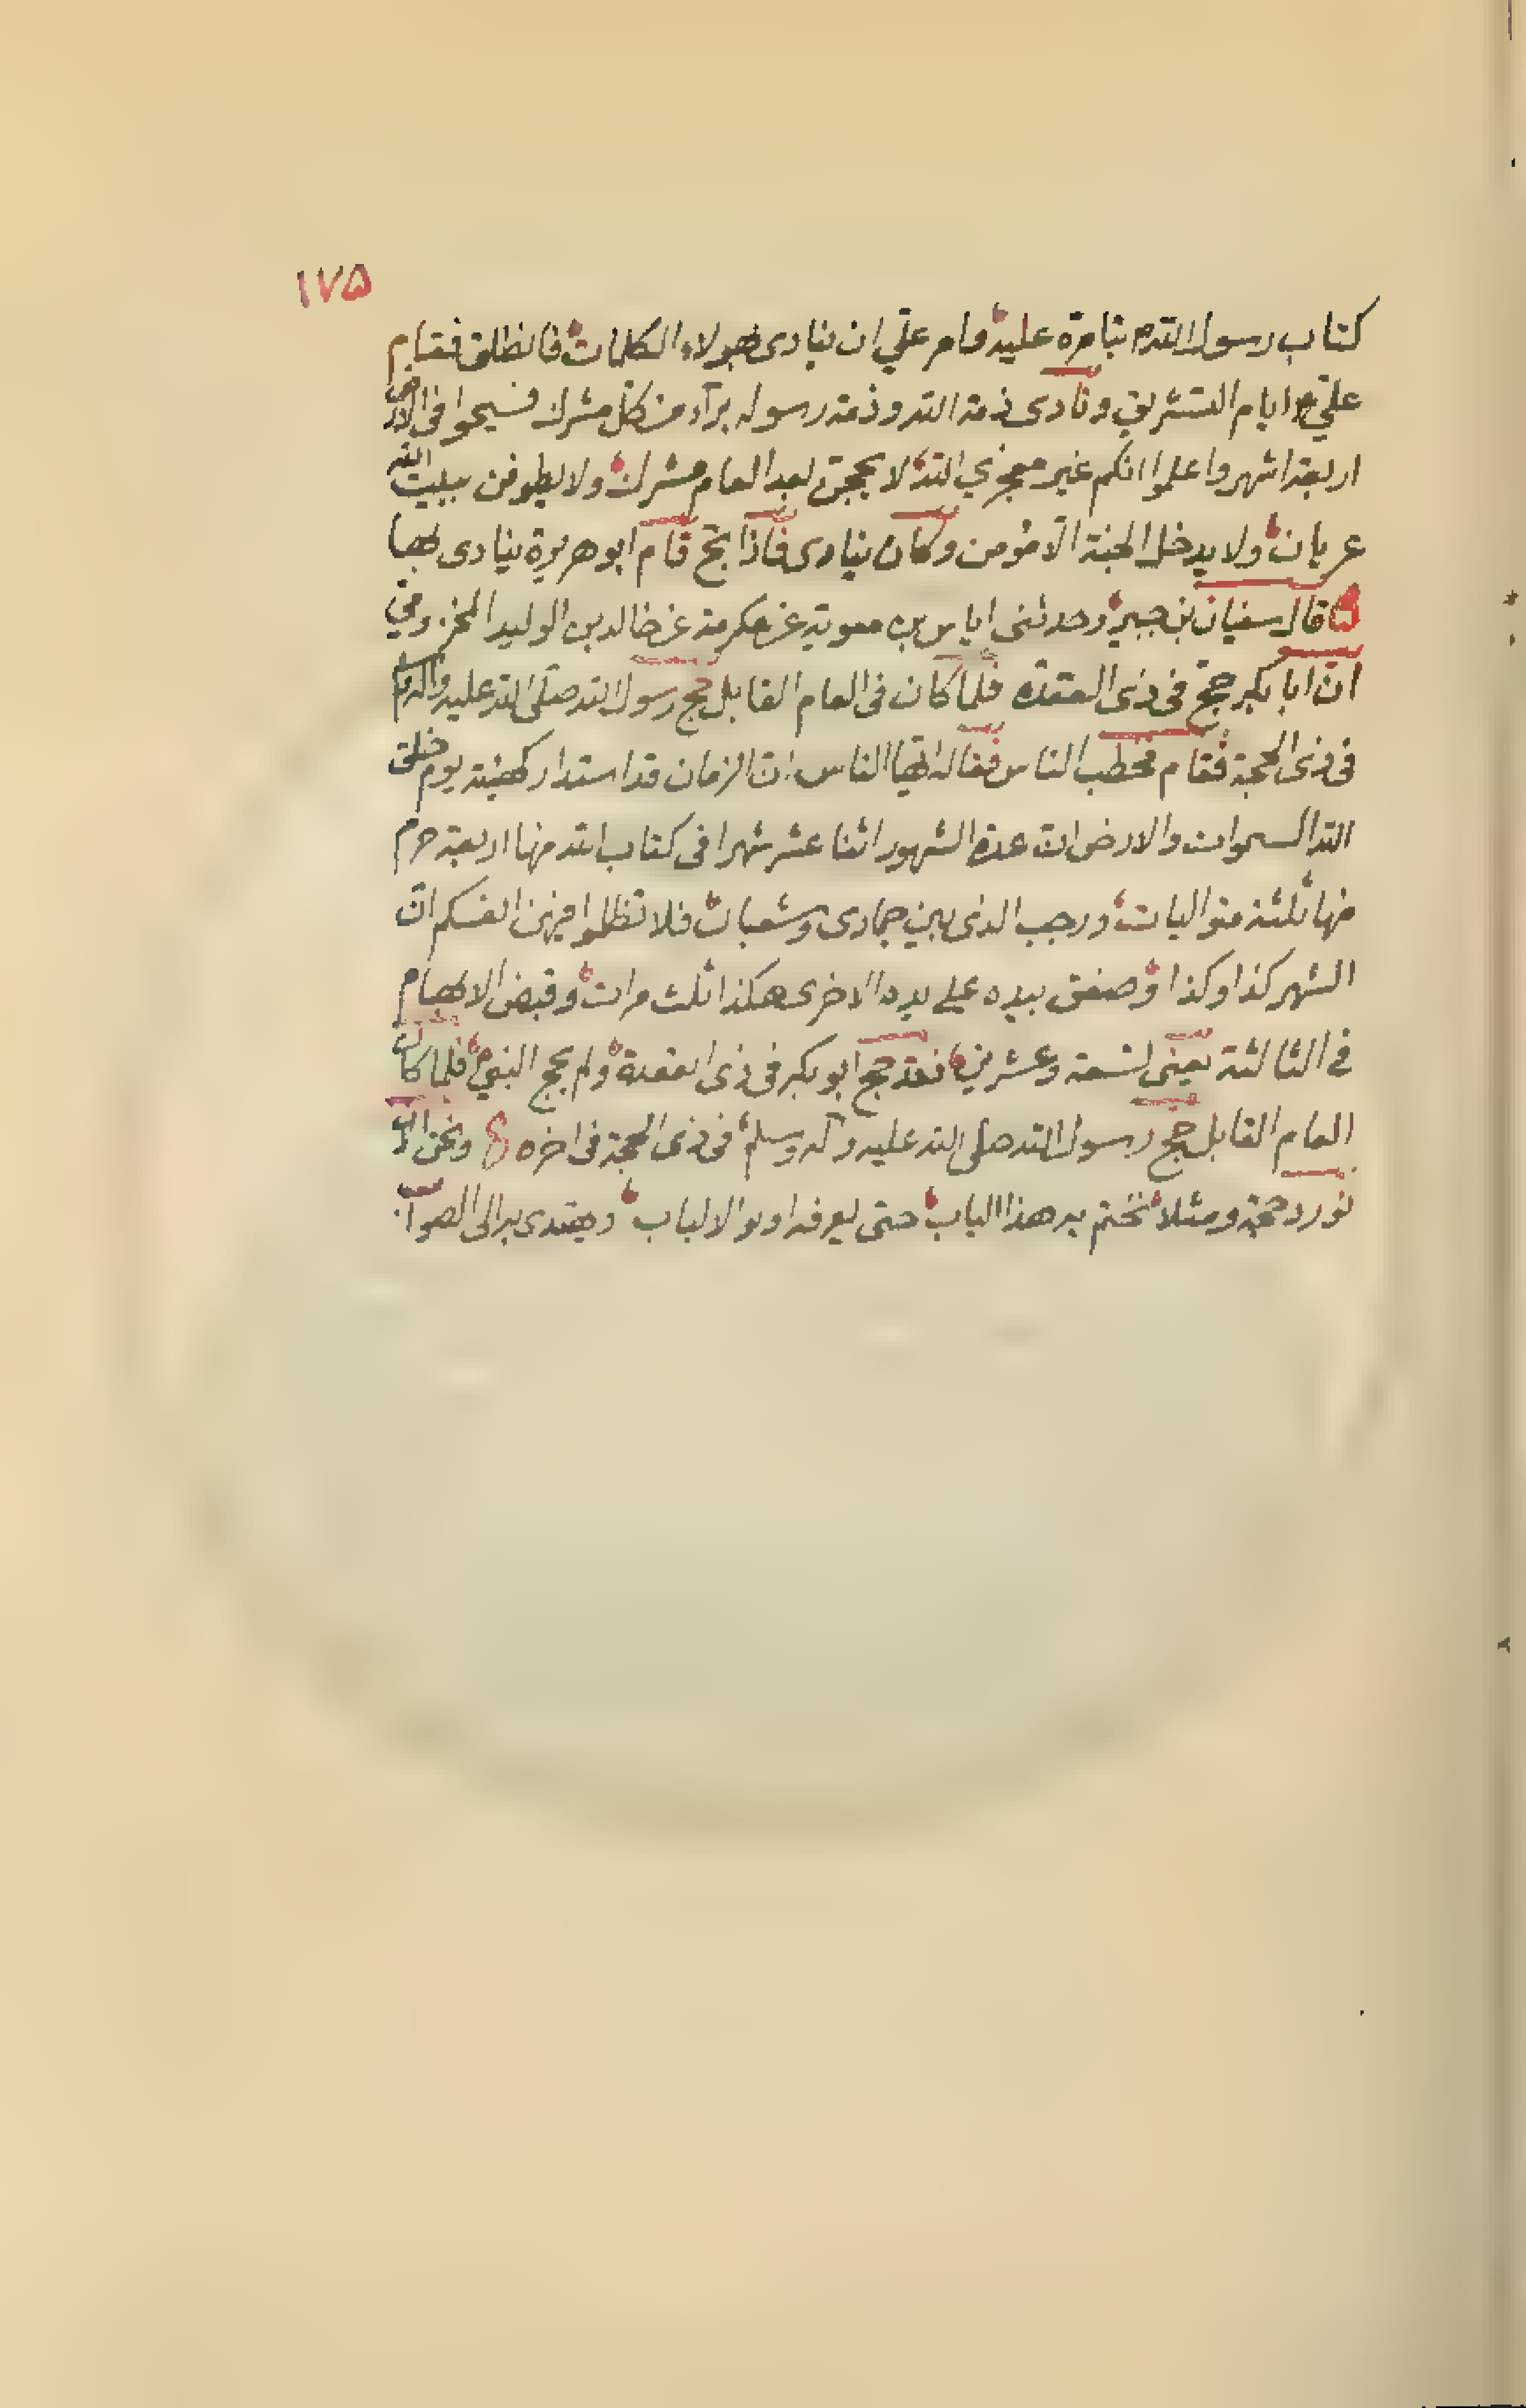 ١٧٥
كتاب رسول الله بتامرة عليه وامر علي ان ينادى بهولاء الكلمات فانطلق فقام
علي ايام التشريق ونادى ذمة الله وذمة رسوله براء من كل مشرك فسيحوا فى الارض
اربعة اشهر واعلموا انكم غير معجزي الله لا يحجن بعد العام مشرك ولا يطوفن ببيت الله
عريان ولا يدخل الجنة الا مؤمن وكان ينادى فاذا بح قام ابو هريرة ينادى بها
قال سفيان بن جبير وحدثنى اياس بن معوية عن عكرمة عن خالد بن الوليد المخزومي
ان ابا بكر حج فى ذى القعدة فلما كان فى العام القابل حج رسول الله صلى الله عليه واله
فى ذى الحجة فقام فخطب الناس فقال ايها الناس ان الزمان قد استدار كهيئة يوم خلق
الله السموات والارض ان عدة الشهور اثنا عشر شهرا فى كتاب الله منها اربعة حرم
منها ثلثة متواليات ورجب الذى بين جمادى وشعبان فلا تظلموا فيهن انفسكم ان
الشهر كذا وكذا وصفق بيده على يده الاخرى هكذا ثلث مرات وقبض الابهام
في الثالثة يعنى تسعة وعشرين فقد حج ابو بكر فى ذى القعدة ولم يحج النبي فلما كان
العام القابل حج رسول الله صلى الله عليه وآله وسلم فى ذى الحجة فى اخره ونحن الان
نورد حجة ومثلا نختم به هذا الباب حتى يعرفه اولو الالباب ويهتدى به الى الصواب